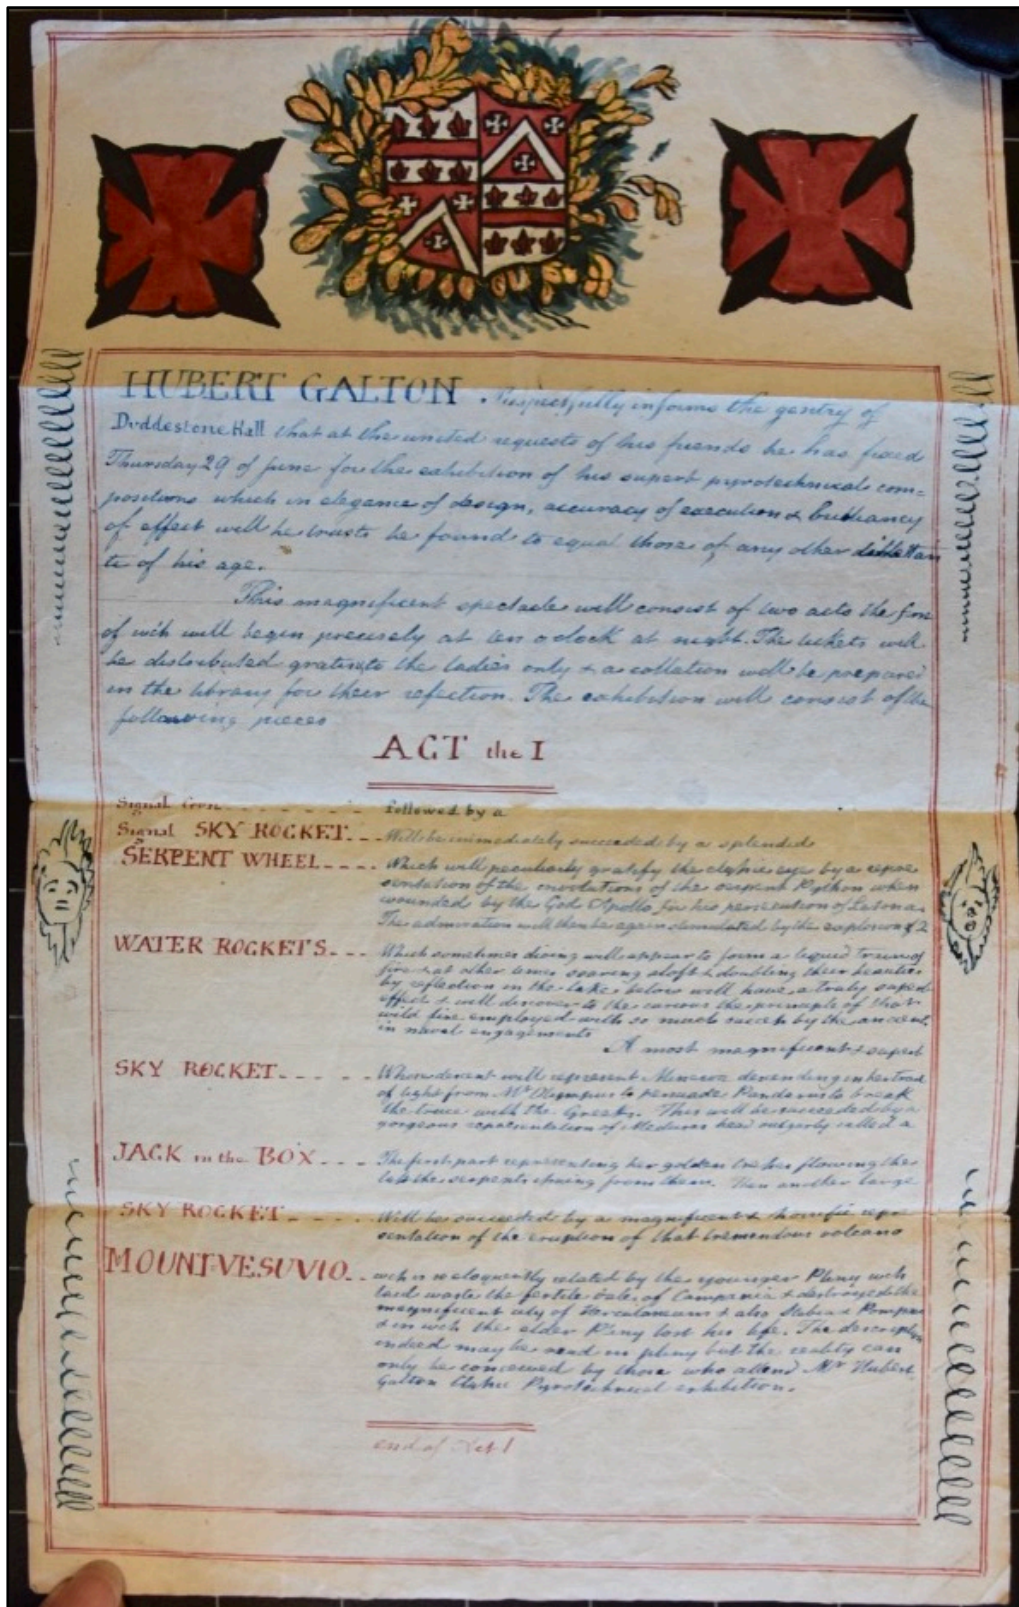 HUBERT GALTON. Respectfully informs the gentry of
Duddestone Hall that at the united requests of his friends he has fixed
Thursday 29 of June for the exhibition of his superb pyrotechnical com=
positions which in elegance of design, accuracy of execution & brilliancy
of effect will he trusts be found to equal those of any other dilettan
te of his age.
This magnificent spectacle will consist of two acts the firs
of wch will begin precisely at ten o clock at night. The tickets will
be distributed gratis to the ladies only & a collation will be prepared
in the library for their refection. The exhibition will consist of the
following pieces
ACT the I
Signal Gun - - - - - - - followed by a
Signal SKY ROCKET - - Will be immediately succeeded by a splendid
SERPENT WHEEL - - - - Which will peculiarly gratify the classic eye by a repre
sentation of the convolutions of the serpent Python when
wounded by the God Apollo for his persecution of Latona.
The admiration will then be again stimulated by the explosion of 2
WATER ROCKETS - - - Which sometimes diving will appear to form a liquid train of
fire & at other times soaring aloft & doubling their beauties
by reflection in the lake below will have a truly superb
effect & will discover to the curious the principle of that
wild fire employed with so much success by the ancients
in naval engagements
A most magnificent & superb
SKY ROCKET - - - - Whose descent will represent Minerva descending in her trail
of light from Mt Olympus to persuade Pandarus to break
the truce with the Greeks. This will be succeeded by a
gorgeous representation of Medusas head vulgarly called a
JACK in the BOX - - - The first part representing her golden tresses flowing the
last the serpents rising from them. Then another large
SKY ROCKET - - - - Will be succeeded by a magnificent & horrific repre
sentation of the eruption of that tremendous volcano
MOUNT VESUVIO - - wch is so eloquently related by the younger Pliny wch
laid waste the fertile vales of Campania & destroyed the
magnificent city of Herculaneum & also Stabia & Pompeii
& in wch the elder Pliny lost his life. The description
indeed may be read in pliny but the reality can
only be conceived by those who attend Mr Hubert
Galton Classic Pyrotechnical exhibition.
end of Act I